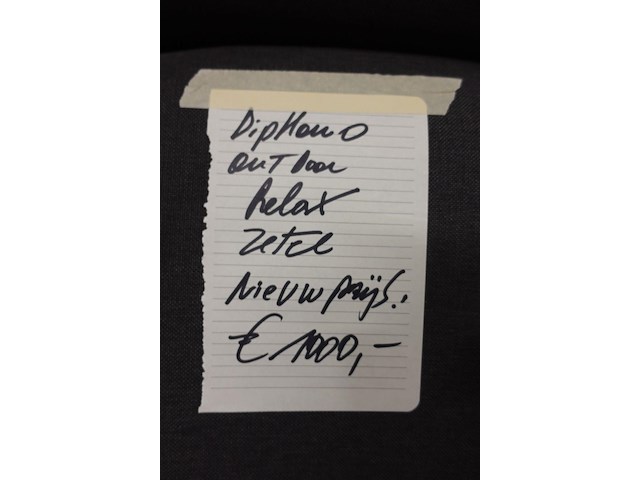 DipHano
OUTDOOR
Relax
Zetel
Nieuwprijs:
€ 1000,-